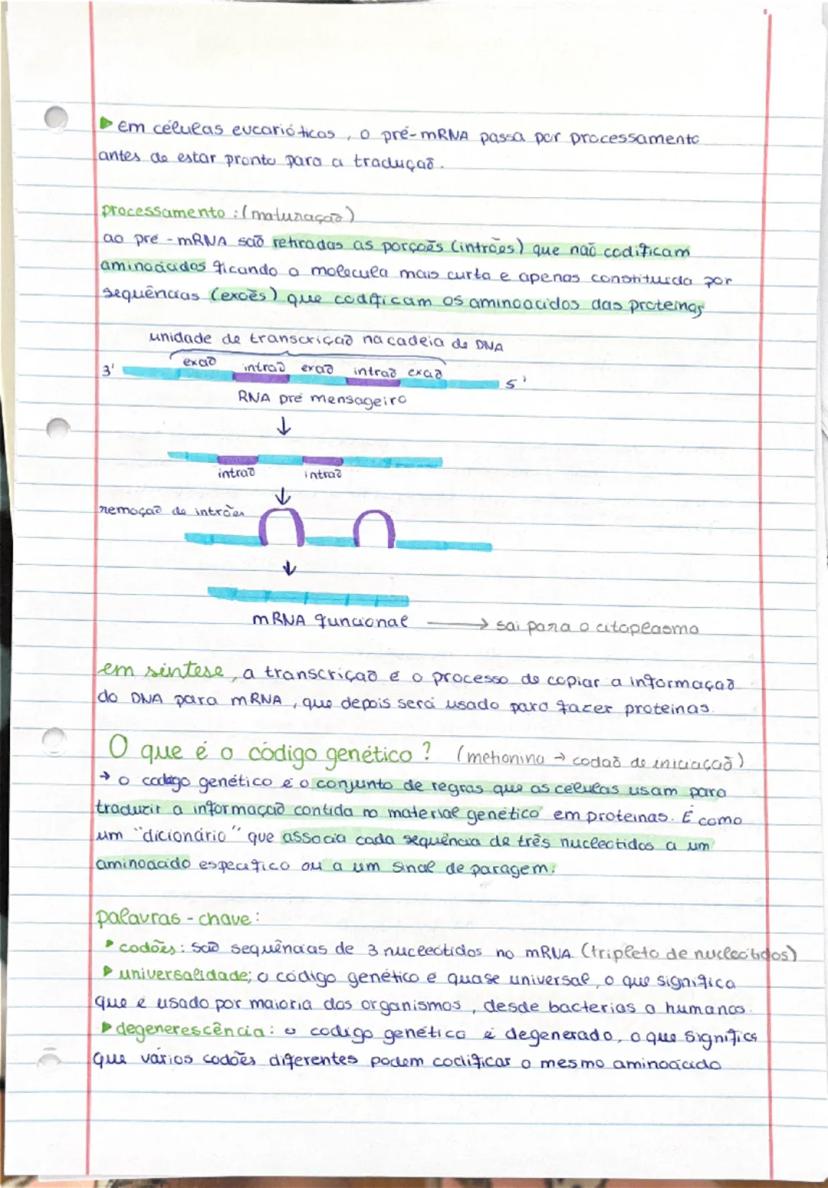 ▶ Em células eucarióticas, o pré-mRNA passa por processamento
antes de estar pronto para a tradução.
processamento: (maturação)
ao pré-mRNA são retiradas as porções (intrões) que não codificam
aminoácidos ficando a molecula mais curta e apenas constituida por
sequências (exões) que codificam os aminoacidos das proteinas
unidade de transcrição na cadeia de DNA
exão intrão exão intrão exão
3' 5'
RNA pré mensageiro
↓
intrão intrão
↓
remoção de intrões
↓
mRNA funcional → sai para o citoplasma
em sintese, a transcrição é o processo de copiar a informação
do DNA para mRNA, que depois será usado para fazer proteinas.
O que é o código genético? (metionina → codão de iniciação)
→ o codigo genético é o conjunto de regras que as celulas usam para
traduzir a informação contida no material genético em proteinas. É como
um "dicionário" que associa cada sequência de três nucleotidos a um
aminoacido especifico ou a um sinal de paragem.
palavras-chave:
▶ codões: são sequências de 3 nucleotidos no mRNA (tripleto de nucleotidos)
▶ universalidade; o código genético é quase universal, o que significa
que é usado por maioria dos organismos, desde bacterias a humanos.
▶ degenerescência: o codigo genético é degenerado, o que significa
que vários codões diferentes podem codificar o mesmo aminoácido